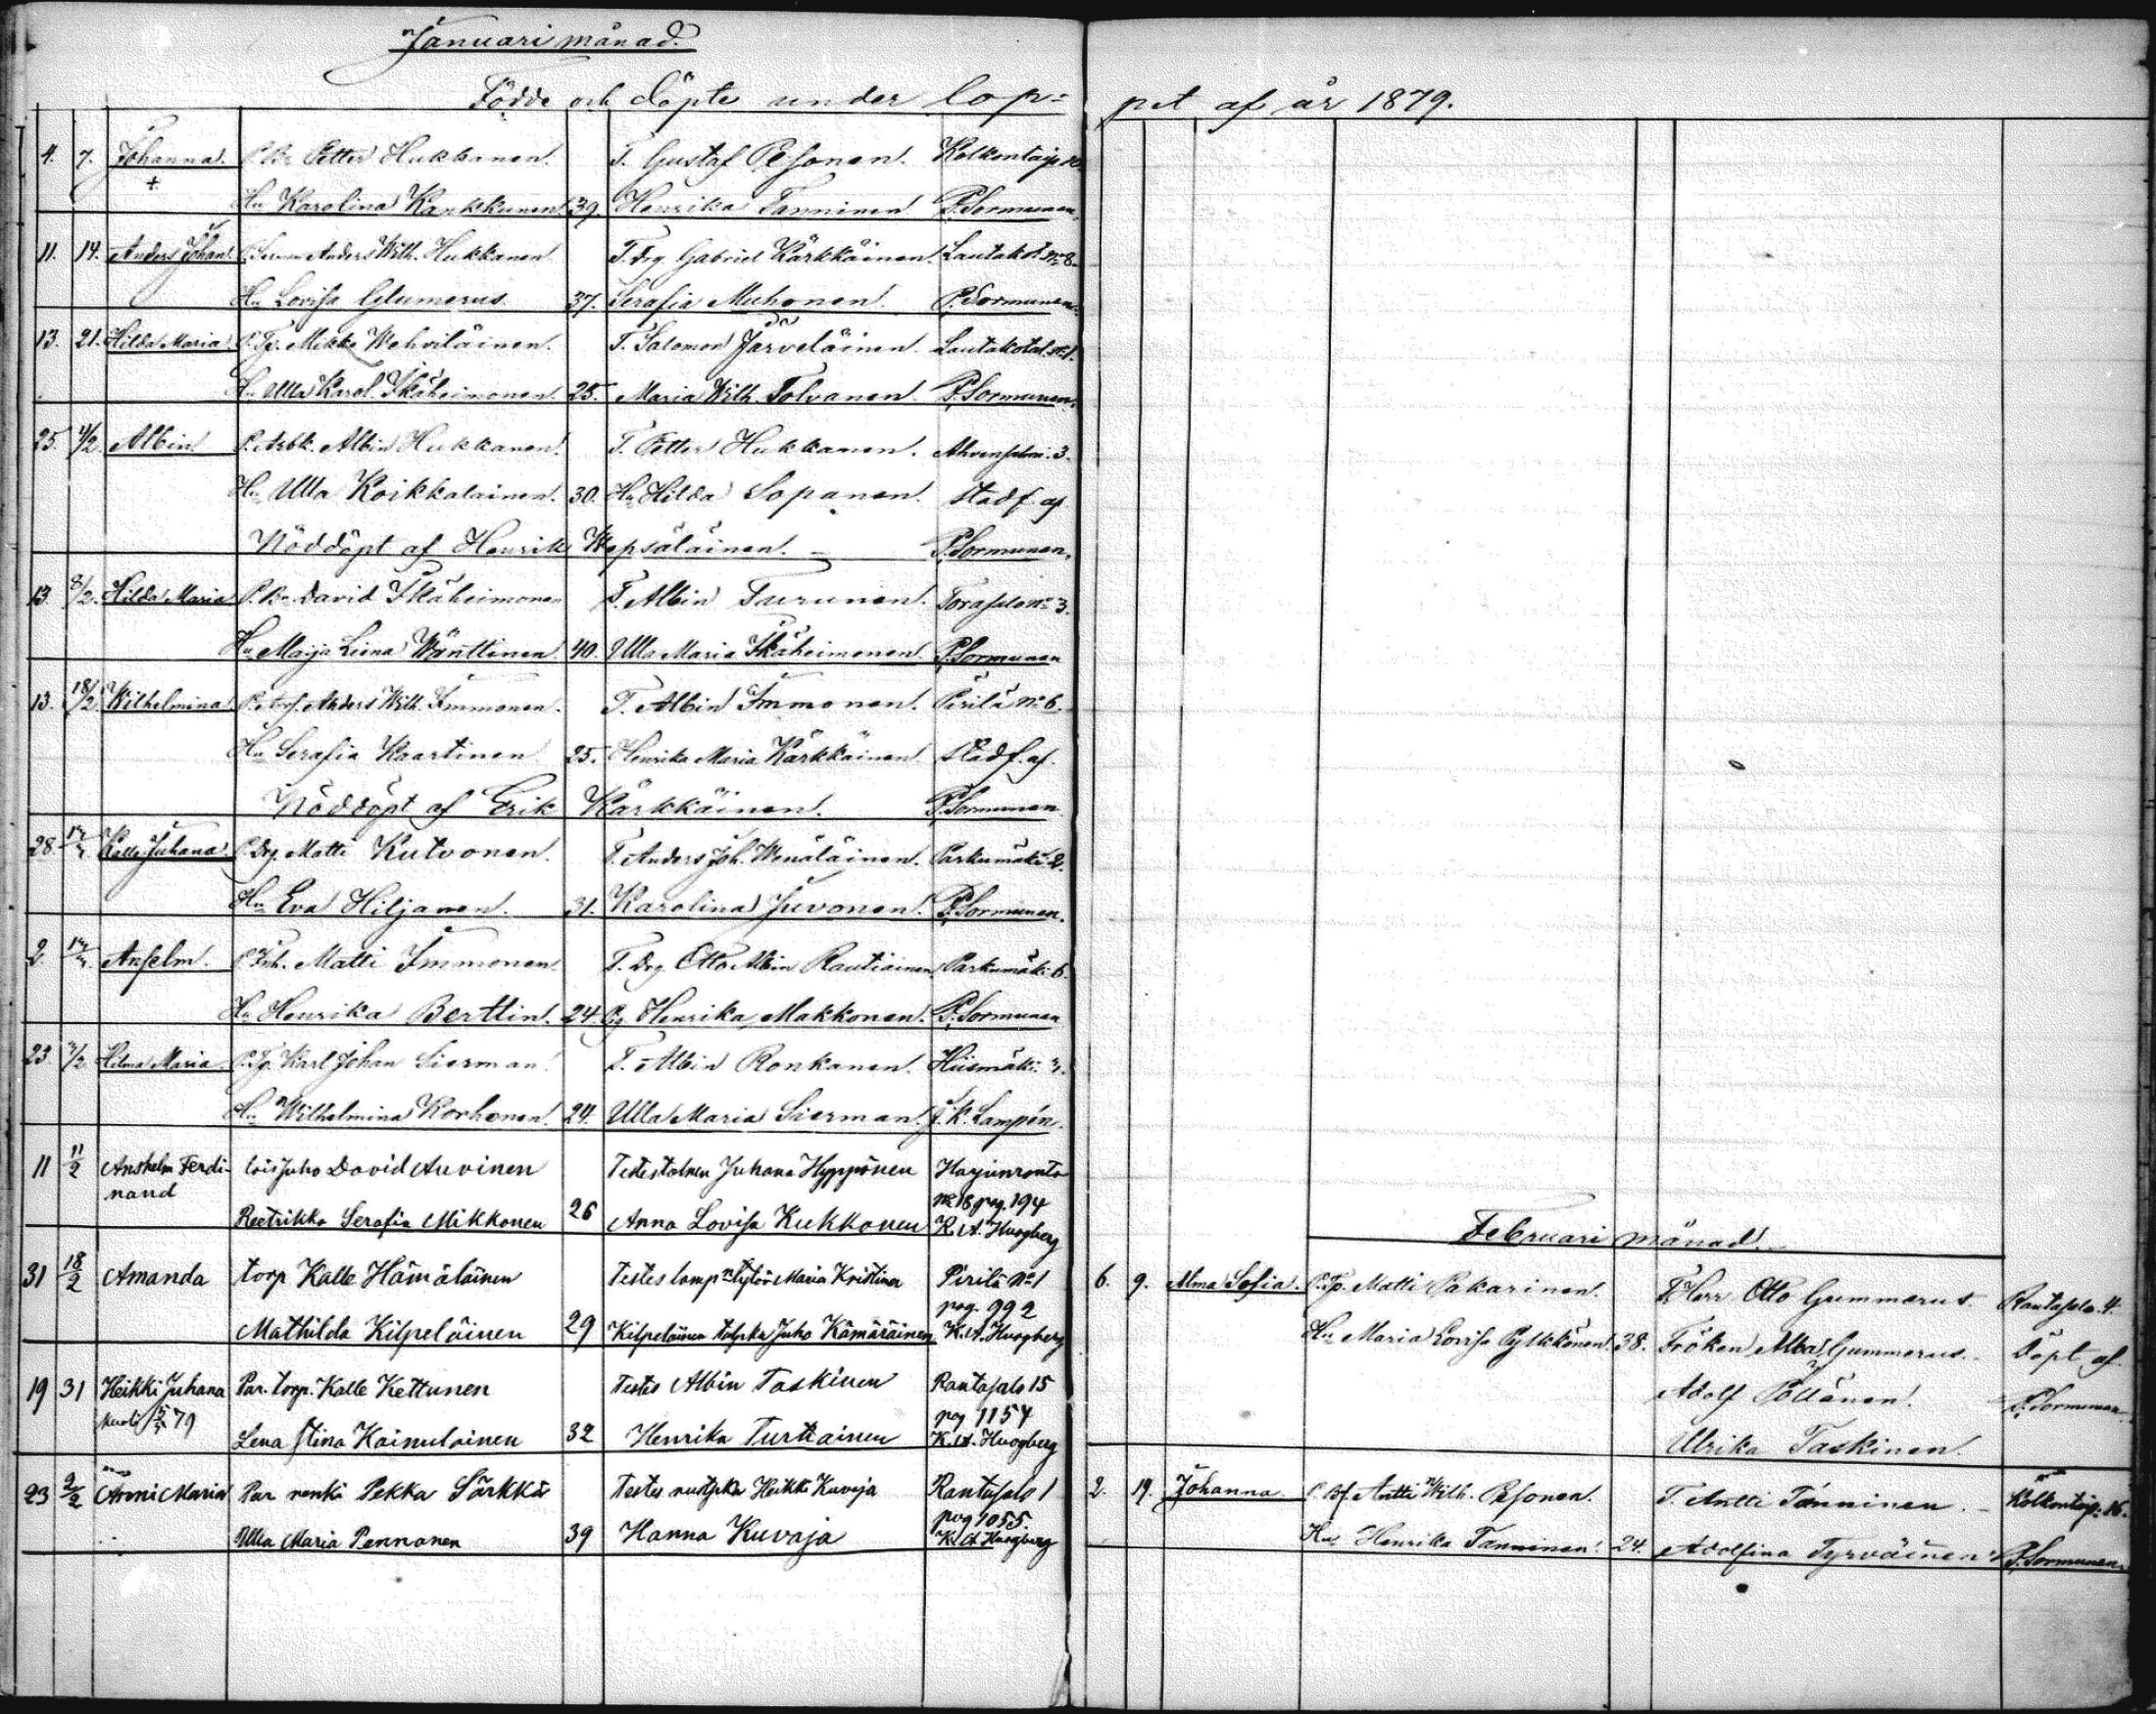 Januari månad.
Födde och döpte under lop=
4. 7. Johanna. P. Br. Petter Hukkanen. T. Gustaf Pesonen. Kolkontaip. 16.
+ Hu Karolina Kankkunen 39. Henrika Tanninen P. Sormunen.
11. 14. Anders Johan. Anders Wilh. Hukkanen T. Drg. Gabriel Kärkkäinen. Lautakot. No 8.
Hu Lovisa Glumerus 37. Serafia Muhonen. P. Sormunen.
13. 21. Hilda Maria P. Tp. Mikko Wehviläinen. T. Salomon Järveläinen. Lautakotal. No 1.
Hu Ulla Karol. Ikäheimonen. 25. Maria Wilh. Tolvanen. P. Sormunen.
25. 4/2. Albin. P. Arbk. Albin Hukkanen. T. Petter Hukkanen. Ahvensalmi. 3.
Hu Ulla Koikkalainen. 30. Hu Hilda Sopanen. stadf. af
Nöddöpt af Henrik Wepsäläinen. P. Sormunen.
13. 8/2. Hilda Maria P. Bn. David Ikäheimonen T. Albin Turunen. Torasalo No 3.
Hu Maija Liena Wänttinen. 40. Ulla Maria Ikäheimonen. P. Sormunen
13. 18/2 Wilhelmina. Anders Wilh. Immonen. T. Albin Immonen. Pirilä No 6.
Hu Serafia Kaartinen 25. Henrika Maria Kärkkäinen stadf. af.
Nöddöpt af Erik Kärkkäinen. P. Sormunen
28. Kalle Juhana. P. Drg. Matti Kutvonen. T. Anders Joh. Wenäläinen. Parkumäki 2.
Hu Eva Hiljanen. 31. Karolina Juvonen. P. Sormunen.
2. Anselm. P. Inh. Matti Immonen. T. Drg. Otto Albin Rautiainen. Parkumäki 6.
Hu Henrika Berttin. 24. Pg. Henrika Makkonen. P. Sormunen
23 Hilma Maria P. Tp. Karl Johan Sierman. T. Albin Ronkanen. Hiismäki
Hu Wilhelmina Korhonen. 24. Ulla Maria Sierman. J. K. Lampén.
11 11/2 Anshelm Ferdi- lois Juho David Auvinen Testes Juhana Hyppönen Harjunranta
nand No 18 pag. 194
Reetrikka Serafia Mikkonen 26 Anna Lovisa Kukkonen K. A. Hougberg
31 18/2 Amanda torp Kalle Hämäläinen Testes lamp. tytön Maria Kristina Pirilä No 1
pag. 992
Mathilda Kilpeläinen 29 Kilpeläinen Juho Kämäräinen K. A. Hougberg
19 31 Heikki Juhana Par. torp. Kalle Kettunen Testes Albin Taskinen Rantasalo 15
kuoli 79 pag 1154
Lena Stina Kainulainen 32 Henrika Turtiainen K. A. Hougberg
23 2/2 Anni Maria Par renki Pekka Särkkä Testes Heikki Kuvaja Rantasalo 1
pag 1055
Ulla Maria Pennanen 39 Hanna Kuvaja K. A. Hougberg
pet af år 1879.
Februari månad.
6. 9. Alma Sofia. P. Tp. Matti Pakarinen. T. Herr Otto Gummerus. Rantasalo. 4.
Hu Maria Lovisa Pylkkönen. 38. Fröken Alba Gummerus. Döpt af
Adolf Pöllänen. P. Sormunen.
Ulrika Taskinen.
2. 19. Johanna P. Bf. Antti Wilh. Pesonen. T. Antti Tanninen. Kolkontaip. 16.
Hu Henrika Tanninen. 24. Adolfina Tyrväinen. P. Sormunen.